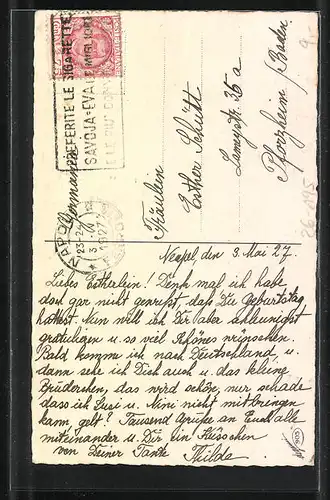 PREFERITE LE SIGARETTE
SAVOJA-EVA
Germania
NAPOLI
Fräulein
Esther Schütt
Lameystr. 35a
Pforzheim / Baden
Neapel, den 3. Mai 27.
Liebes Estherlein! Denk mal ich habe
doch gar nicht gewußt, daß Du Geburtstag
hattest. Nun will ich Dir aber schleunigst
gratulieren u. so viel Schönes wünschen.
Bald komme ich nach Deutschland, u.
dann sehe ich Dich auch u. das kleine
Brüderchen, das wird schön, nur schade
dass ich Susi u. Nini nicht mitbringen
kann, gelt? Tausend Grüße an Euch alle
miteinander u. Dir ein Küsschen
von Deiner Tante Thilda